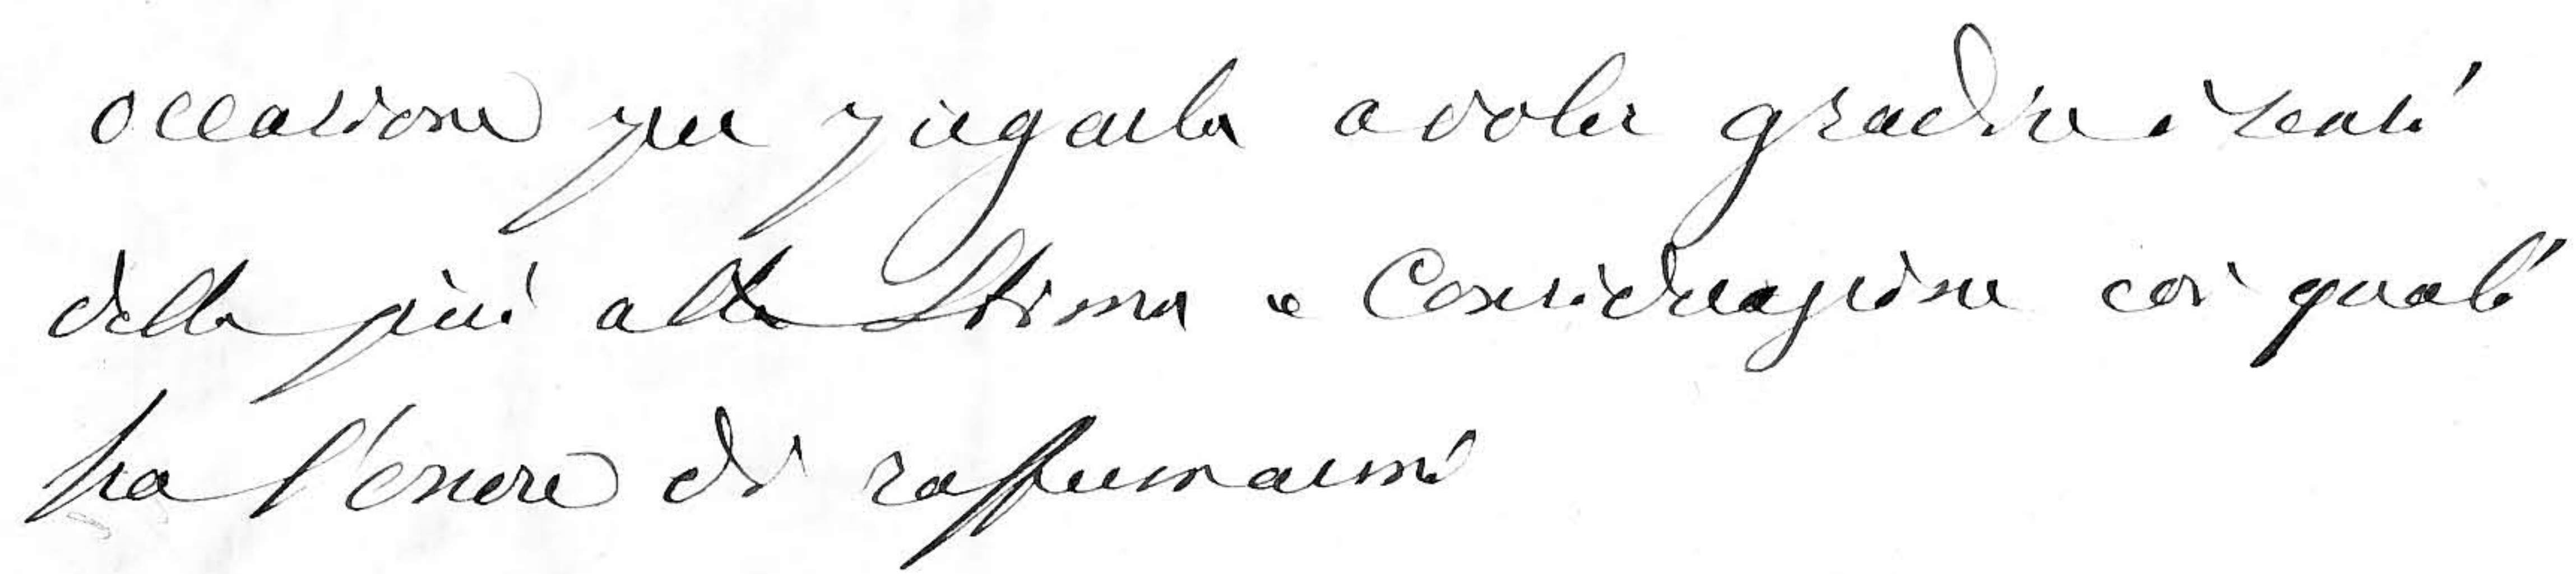 occasione per pregarla a voler gradire i sensi
della più alta Stima e Considerazione coi quali
ha l'onore di raffermarmi